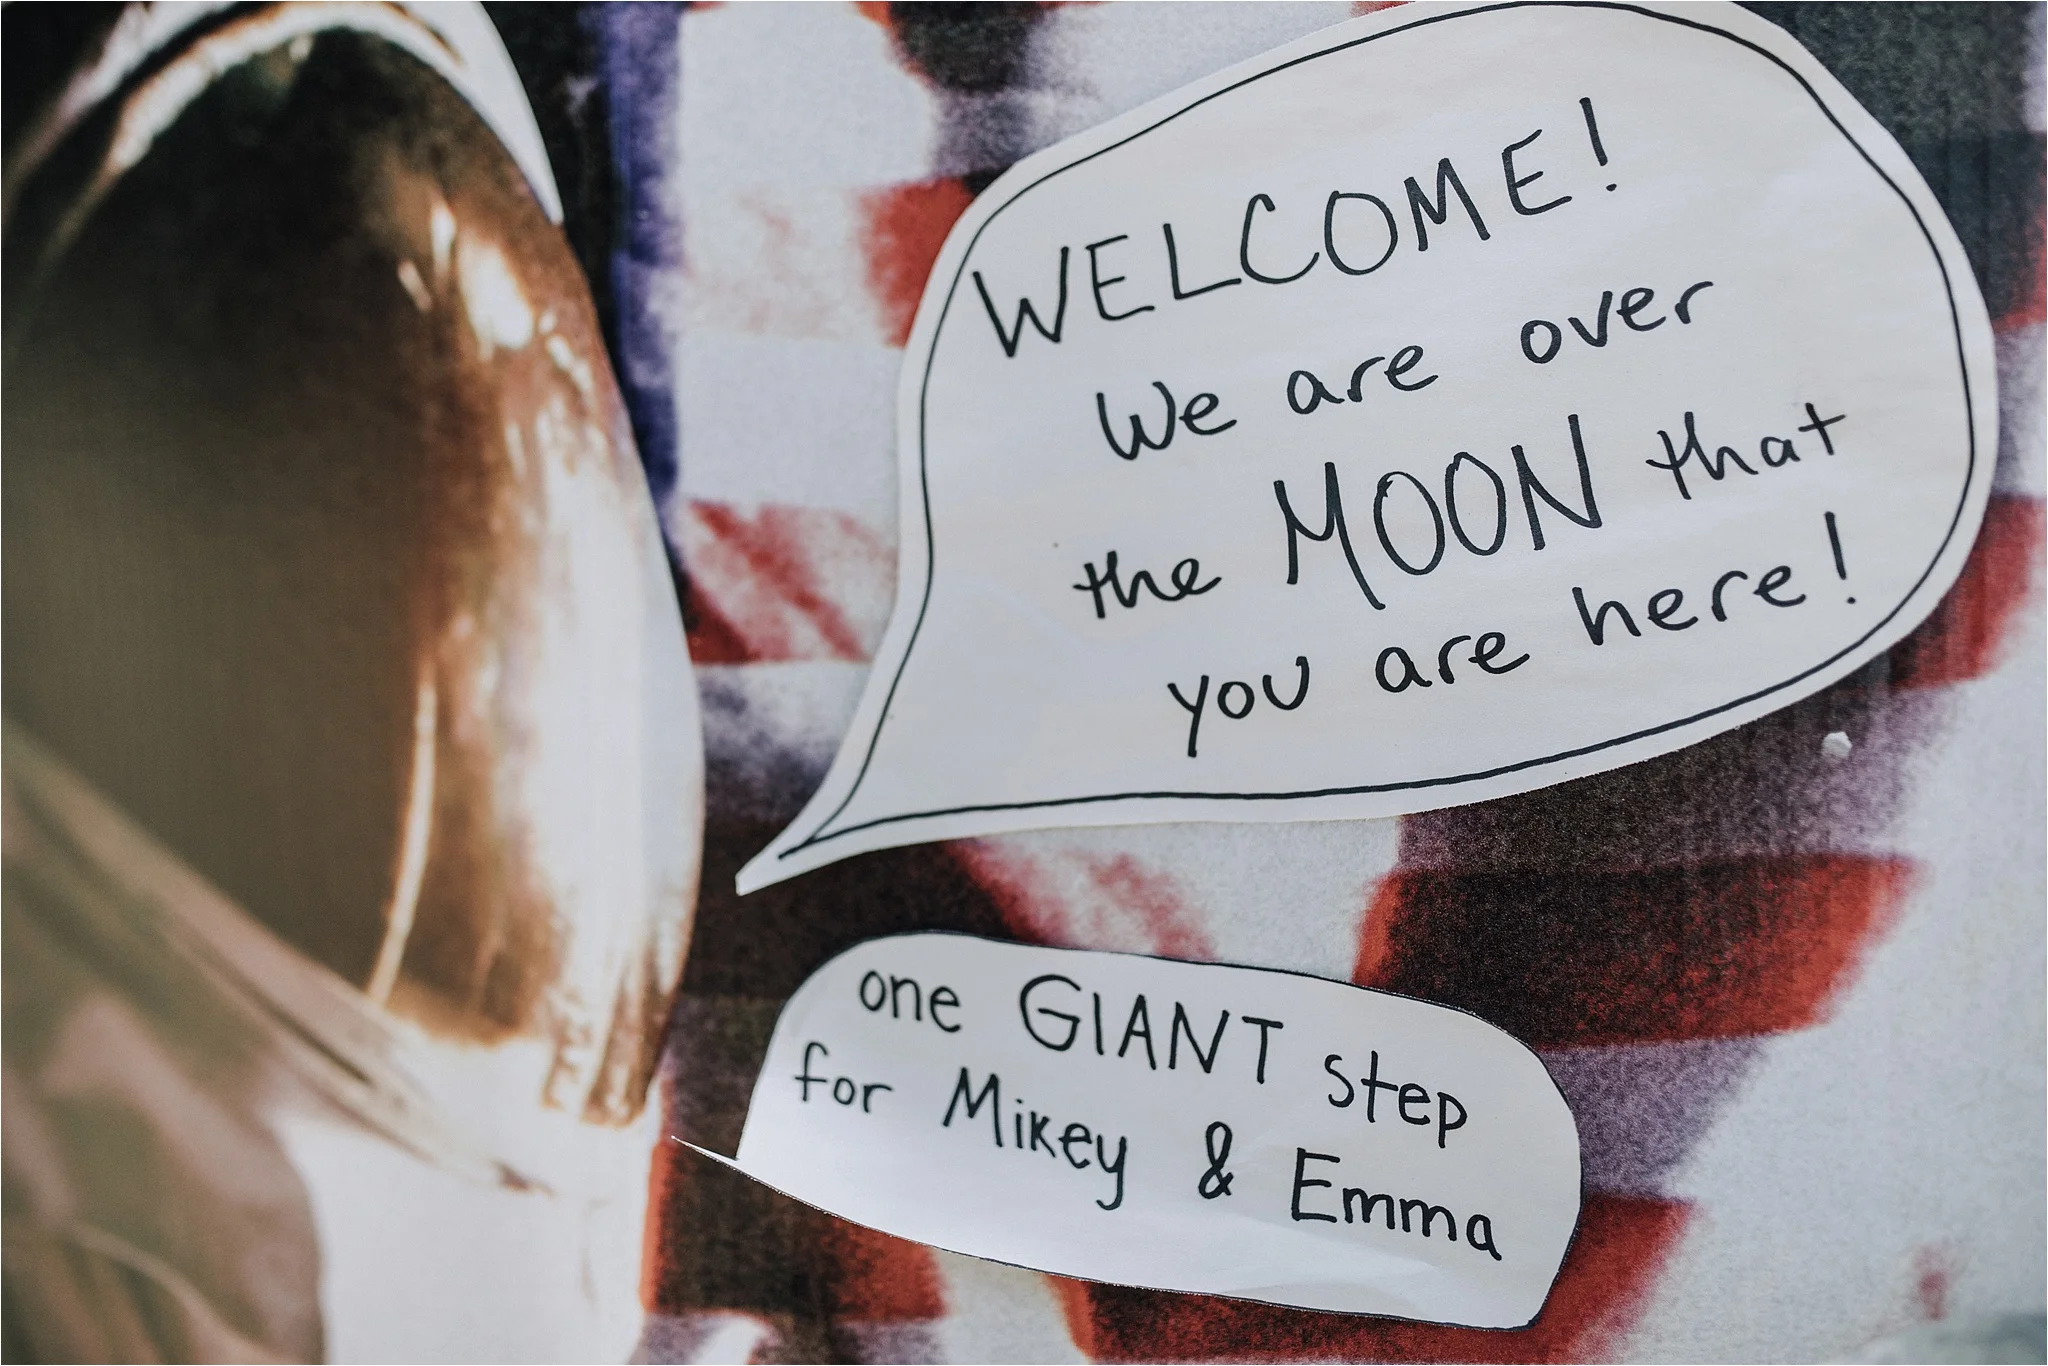 WELCOME!
We are over
the MOON that
you are here!
one GIANT step
for Mikey & Emma